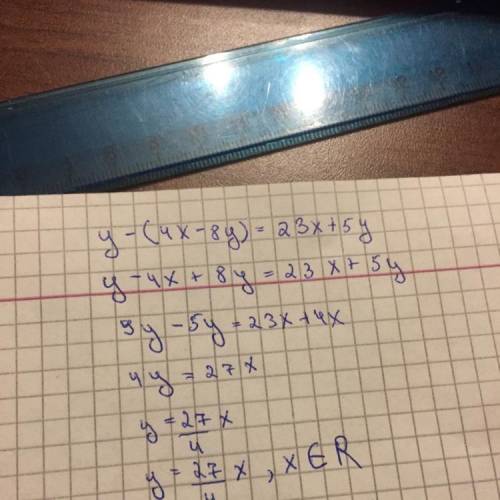 y - (4x - 8y) = 23x + 5y
y - 4x + 8y = 23x + 5y
9y - 5y = 23x + 4x
4y = 27x
y = 27/4 x
y = 27/4 x , x ∈ R